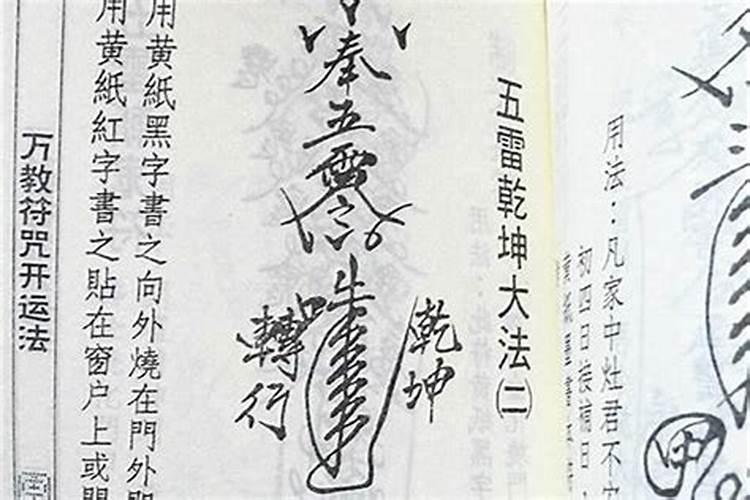 甲
用法：凡家中灶君不
初四日接補日
五雷乾坤大法(二)
奉五雷
乾坤
轉行
用黄紙黑字書之向外燒在門外即
用黄紙紅字書之貼在窗户上或門
万教符咒开运法